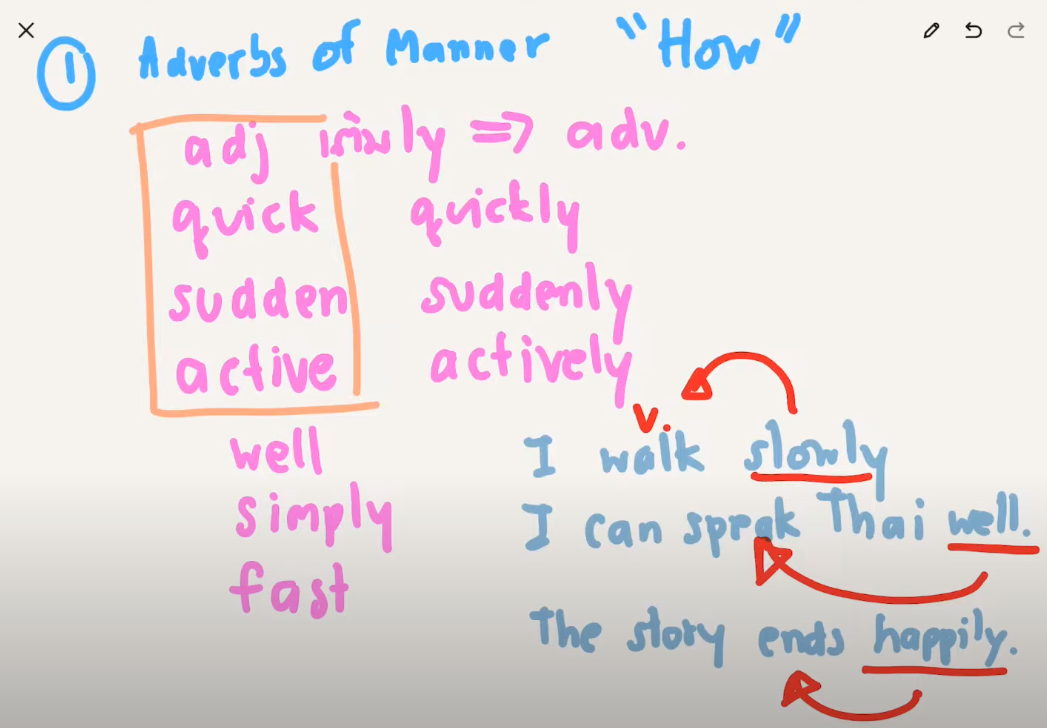 ① Adverbs of Manner "How"
adj เติม ly => adv.
quick quickly
sudden suddenly
active actively
v.
well I walk slowly
simply I can speak Thai well.
fast The story ends happily.